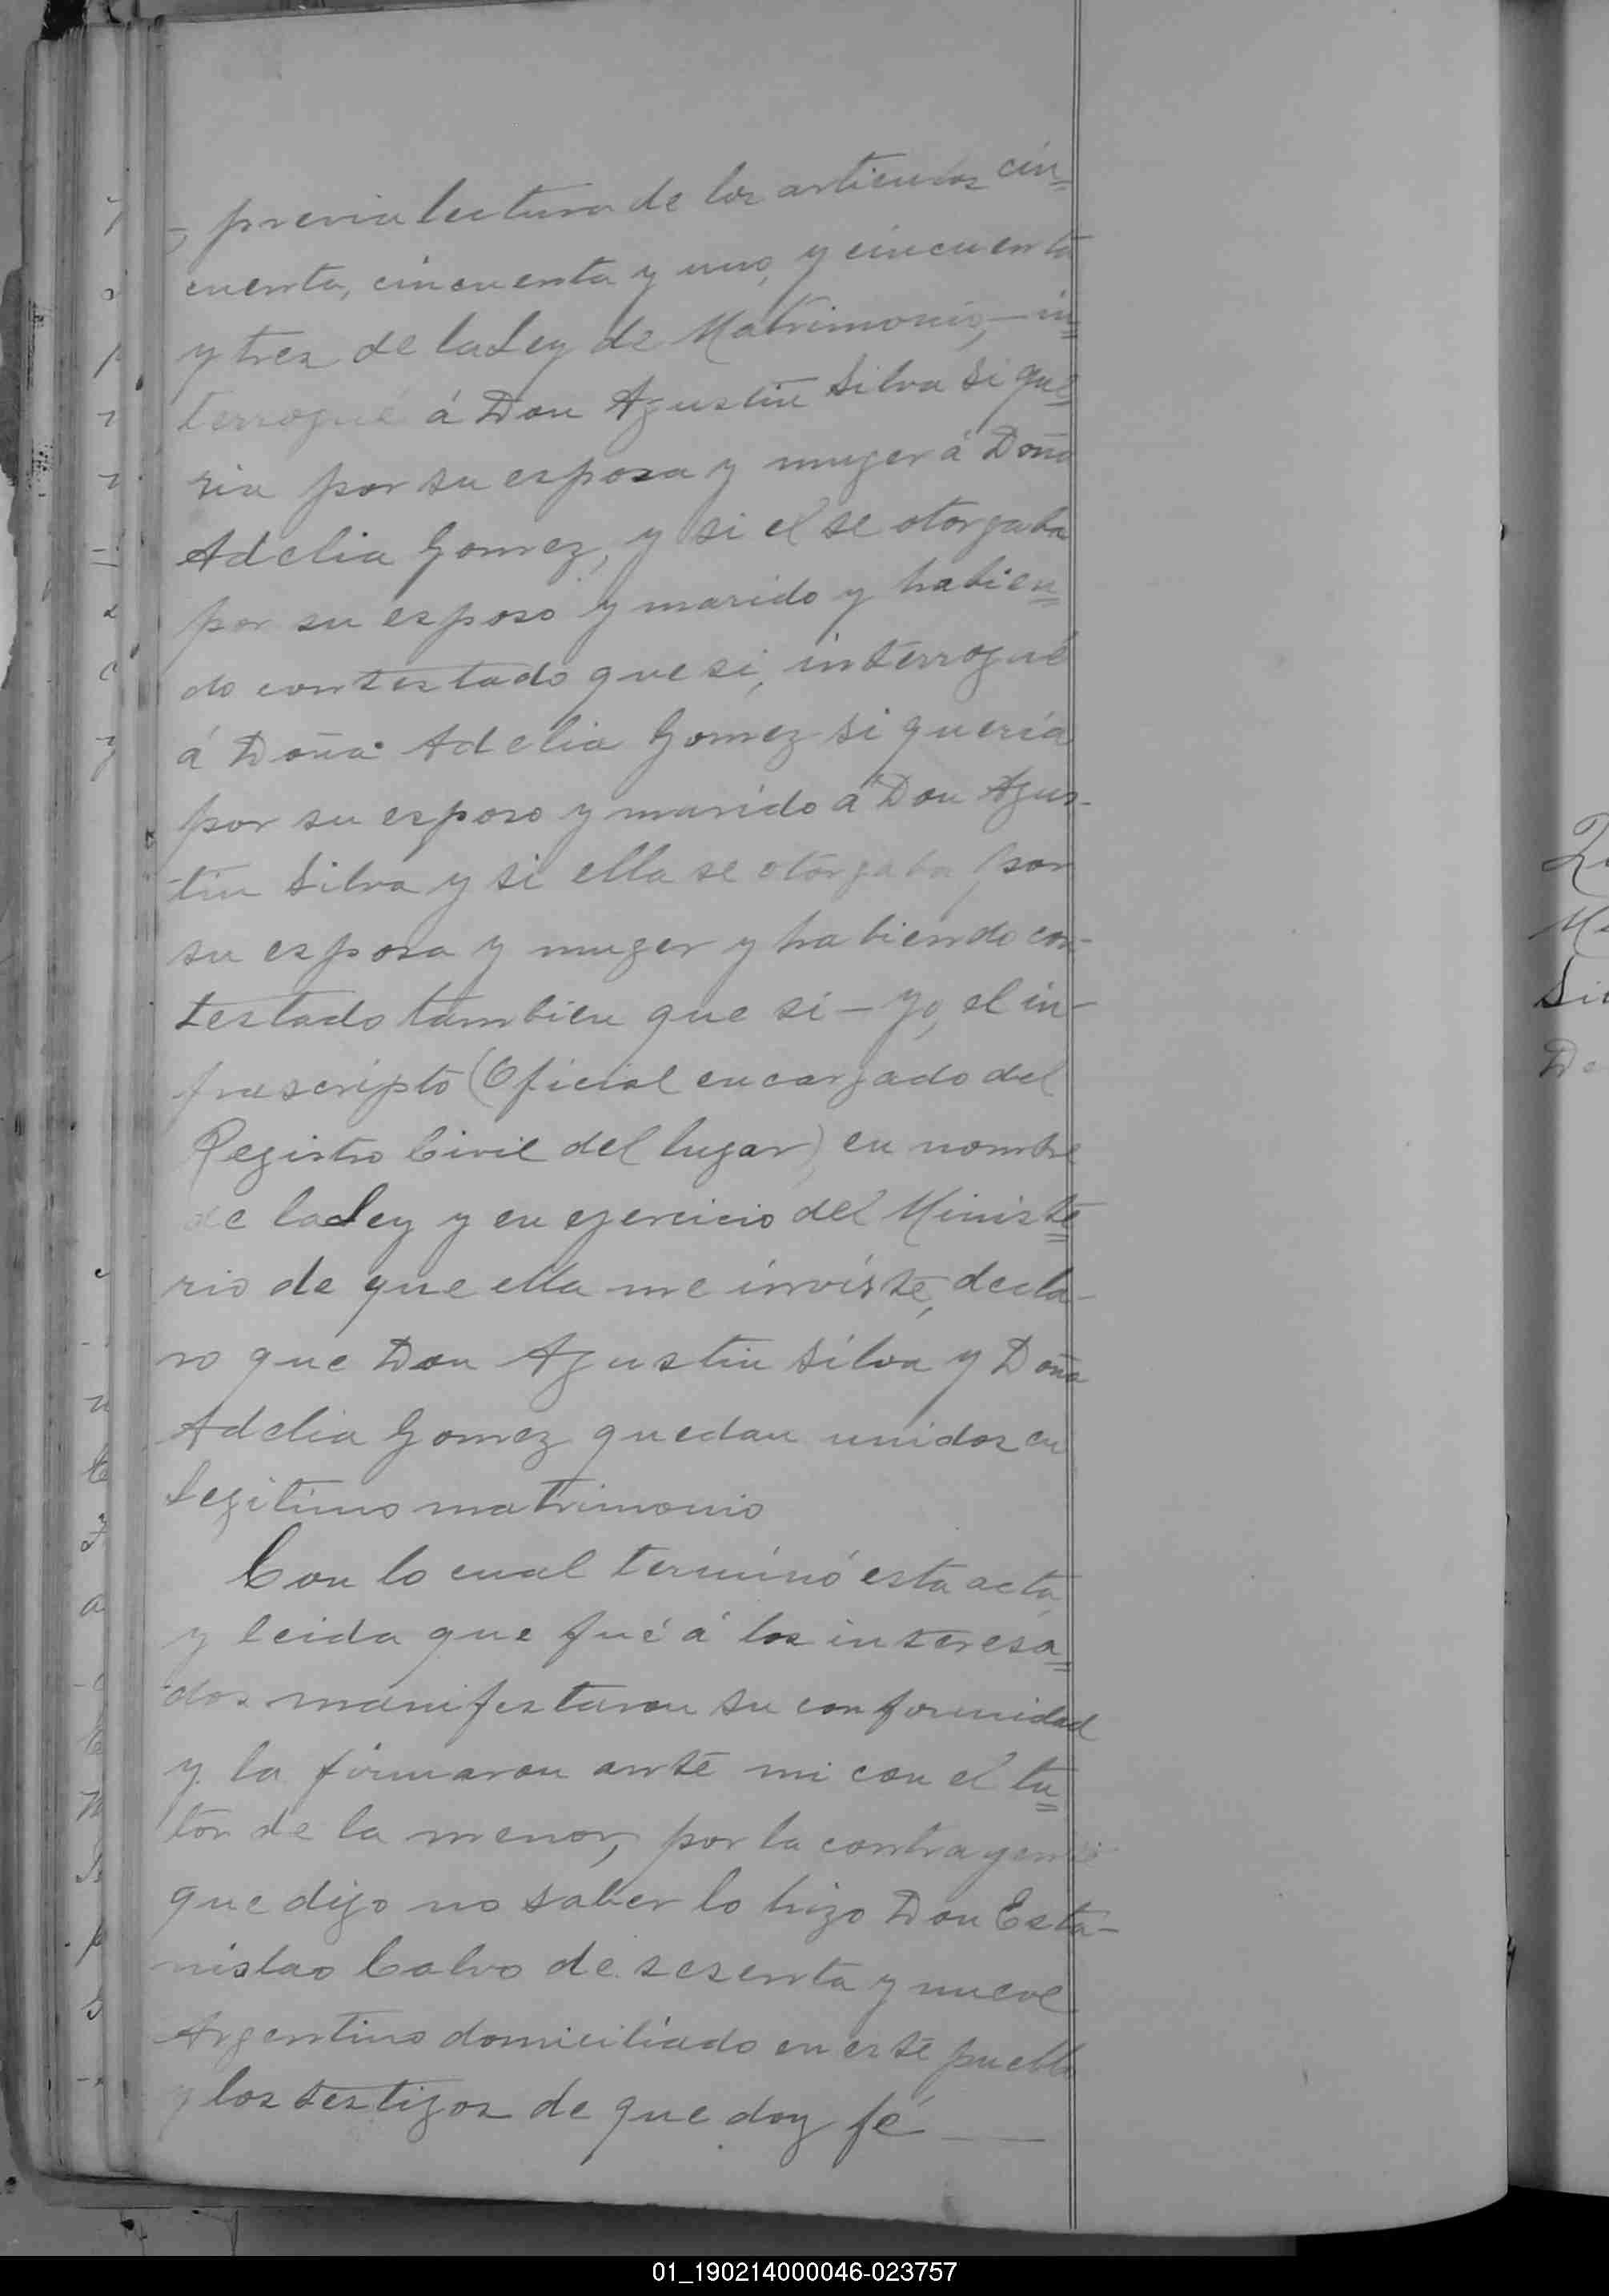 previa lectura de los articulos cin=
cuenta, cincuenta y uno, y cincuenta
y tres de la Ley de Matrimonio, — in=
terrogué á Don Agustin Silva si que=
ria por su esposa y muger á Doña
Adelia Gomez, y si el se otorgaba
por su esposo y marido y habien=
do contestado que si, interrogué
á Doña Adelia Gomez si quería
por su esposo y marido á Don Agus-
tin Silva y si ella se otorgaba por
su esposa y muger y habiendo con-
testado tambien que si — Yo, el in-
frascripto (Oficial encargado del
Registro Civil del lugar) en nombre
de la Ley y en ejercicio del Ministe=
rio de que ella me inviste, decla-
ro que Don Agustin Silva y Doña
Adelia Gomez quedan unidos en
legitimo matrimonio
Con lo cual terminó esta acta
y leida que fué á los interesa=
dos manifestaron su conformidad
y la firmaron ante mi con el tu=
tor de la menor, por la contrayente
que dijo no saber lo hizo Don Esta-
nislao Calvo de sesenta y nueve
Argentino domiciliado en este pueblo
y los testigos de que doy fé —
01_190214000046-023757